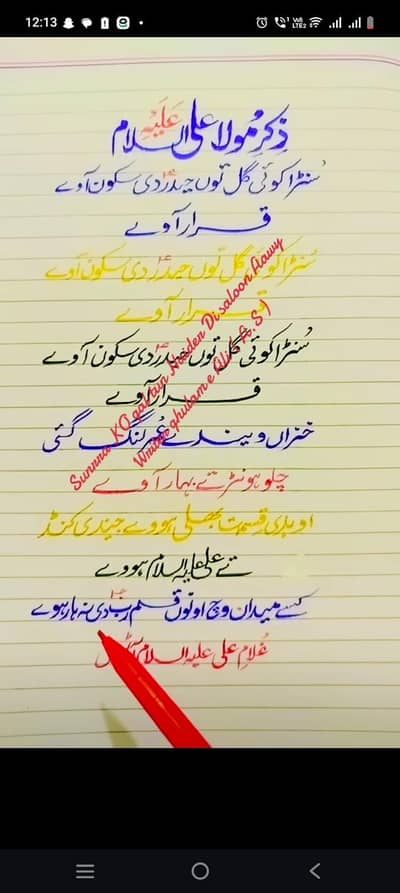 12:13
ذکرِ مولا علی علیہ السلام
سُنڑا کوئی گل توں حیدرؑ دی سکون آوے
قرار آوے
سُنڑا کوئی گل توں حیدرؑ دی سکون آوے
قرار آوے
سُنڑا کوئی گل توں حیدرؑ دی سکون آوے
قرار آوے
Sunnra KO gal tun Haider Di saloon Aawy
Writer ghulam e Ali A.S
خزاں ویندے عُمر لنگ گئی
چلو ہونڑ تے بہار آوے
او بدی قسمت بھلی ہووے جیندی کنڈ
تے علی علیہ السلام ہووے
کسے میدان وچ اونوں قسم ربّ دی نہ ہار ہووے
غُلامِ علی علیہ السلام